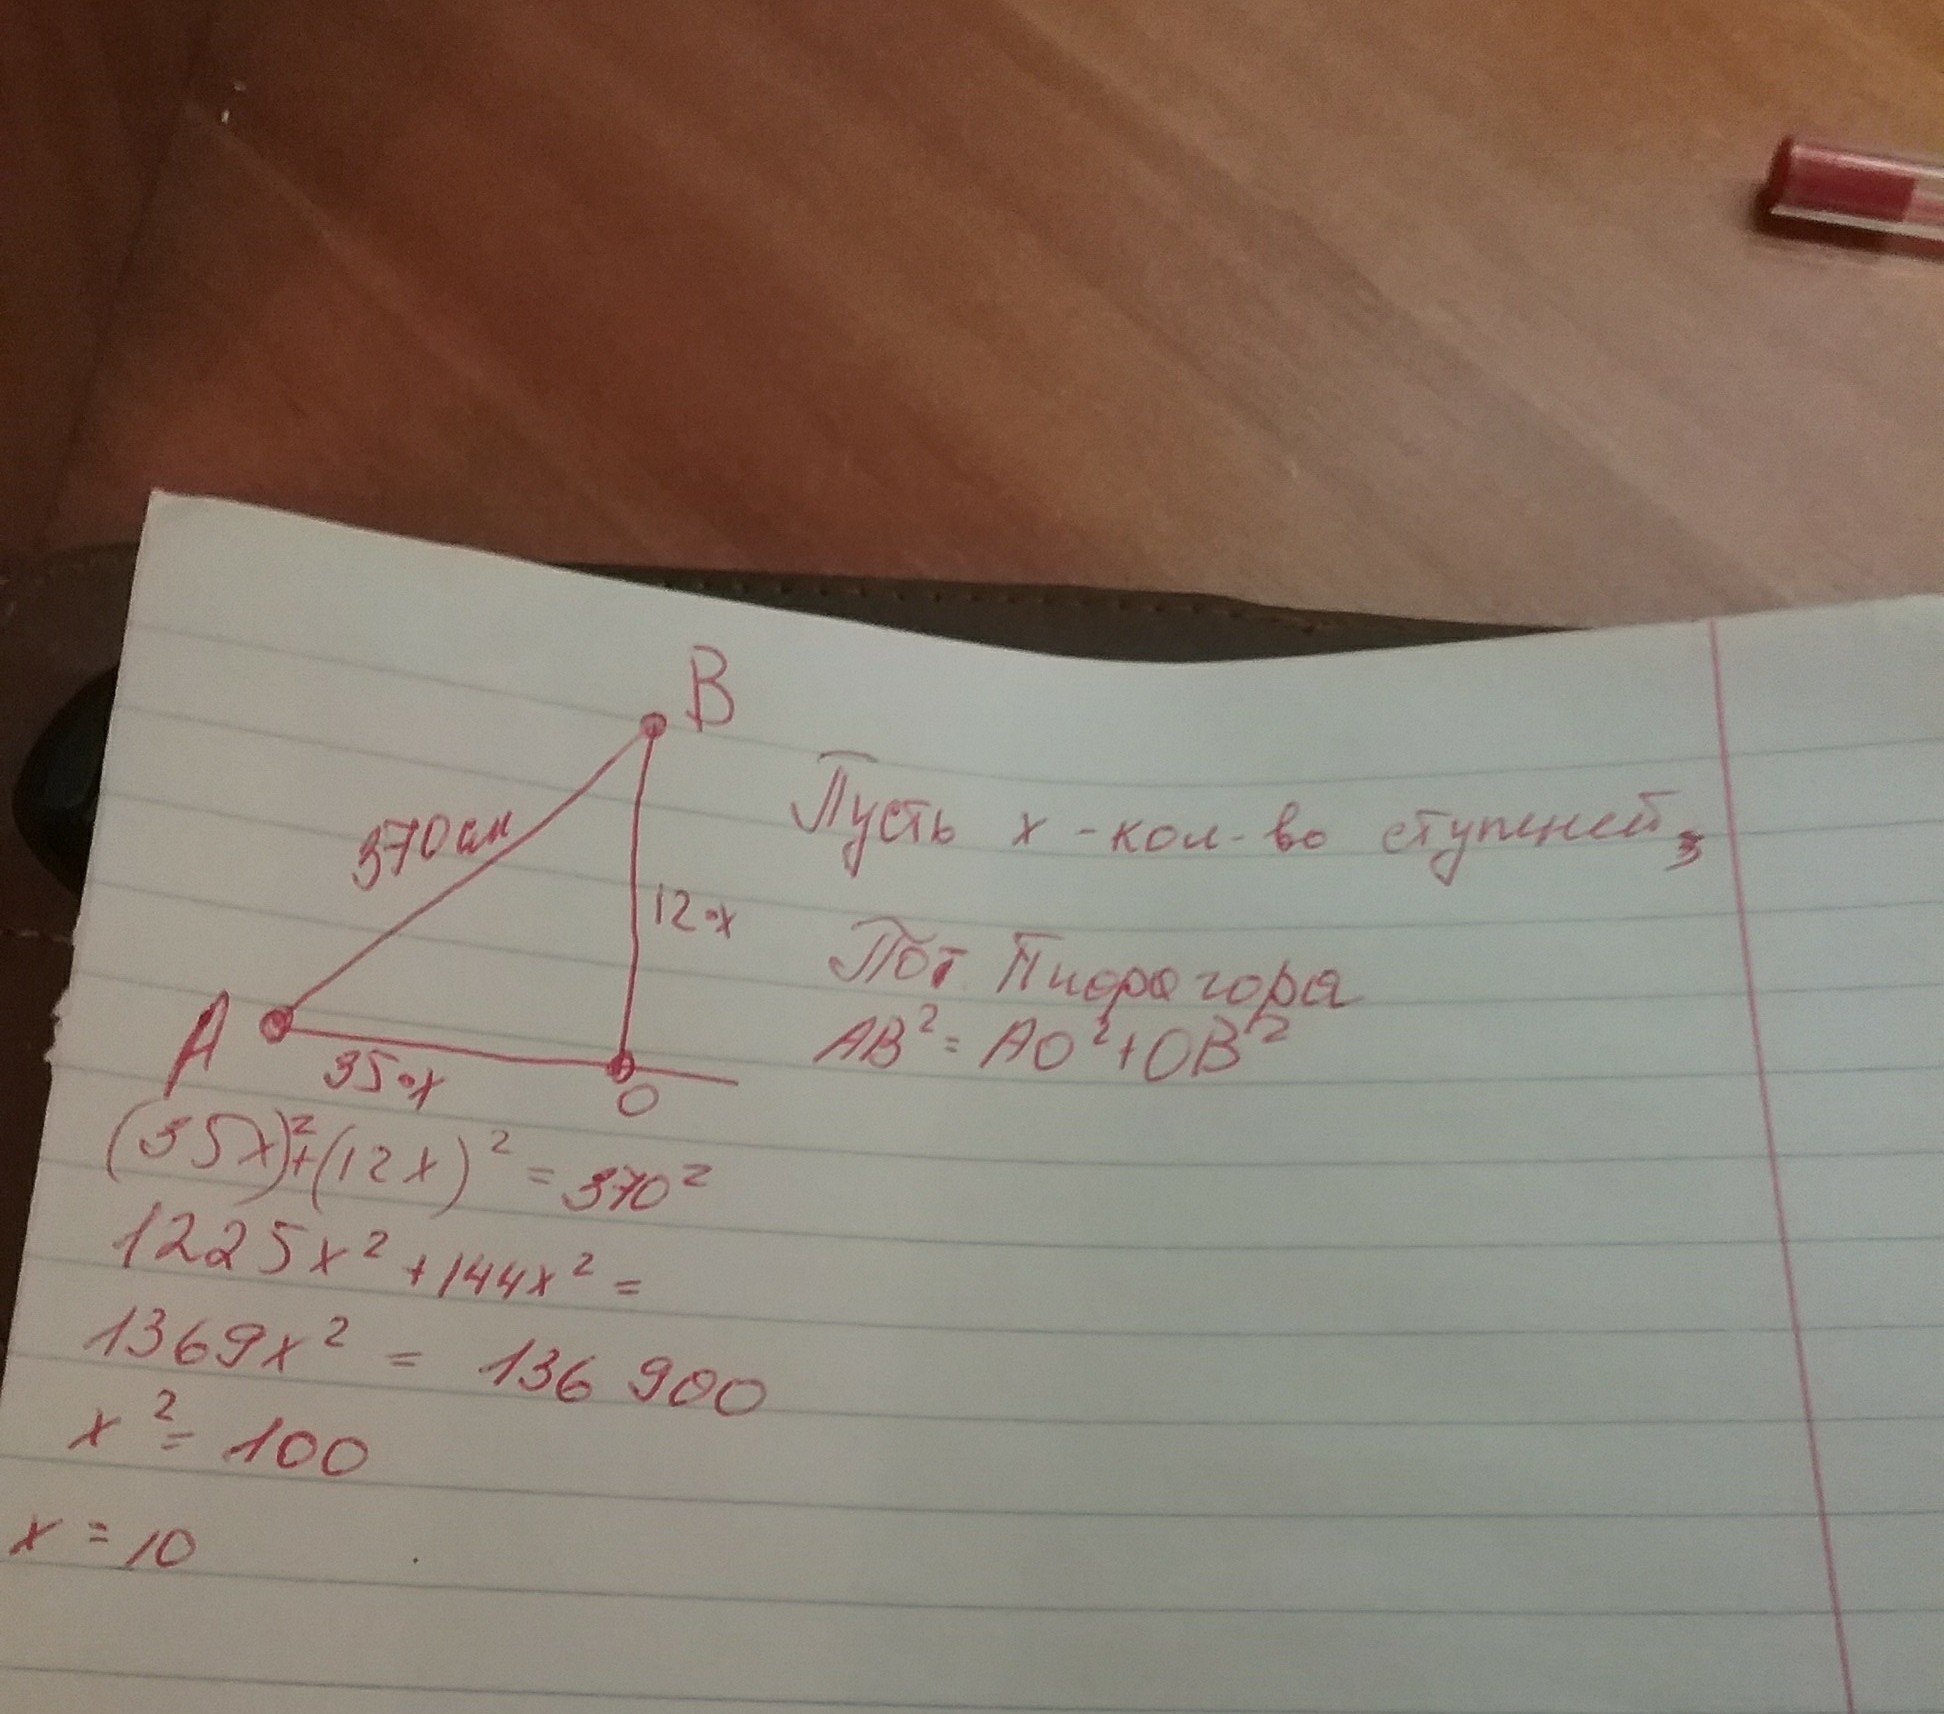 B
370см
12·x
A
35·x
O
Пусть x - кол-во ступеней,
По т. Пифагора
AB² = AO² + OB²
(35x)² + (12x)² = 370²
1225x² + 144x² =
1369x² = 136 900
x² = 100
x = 10